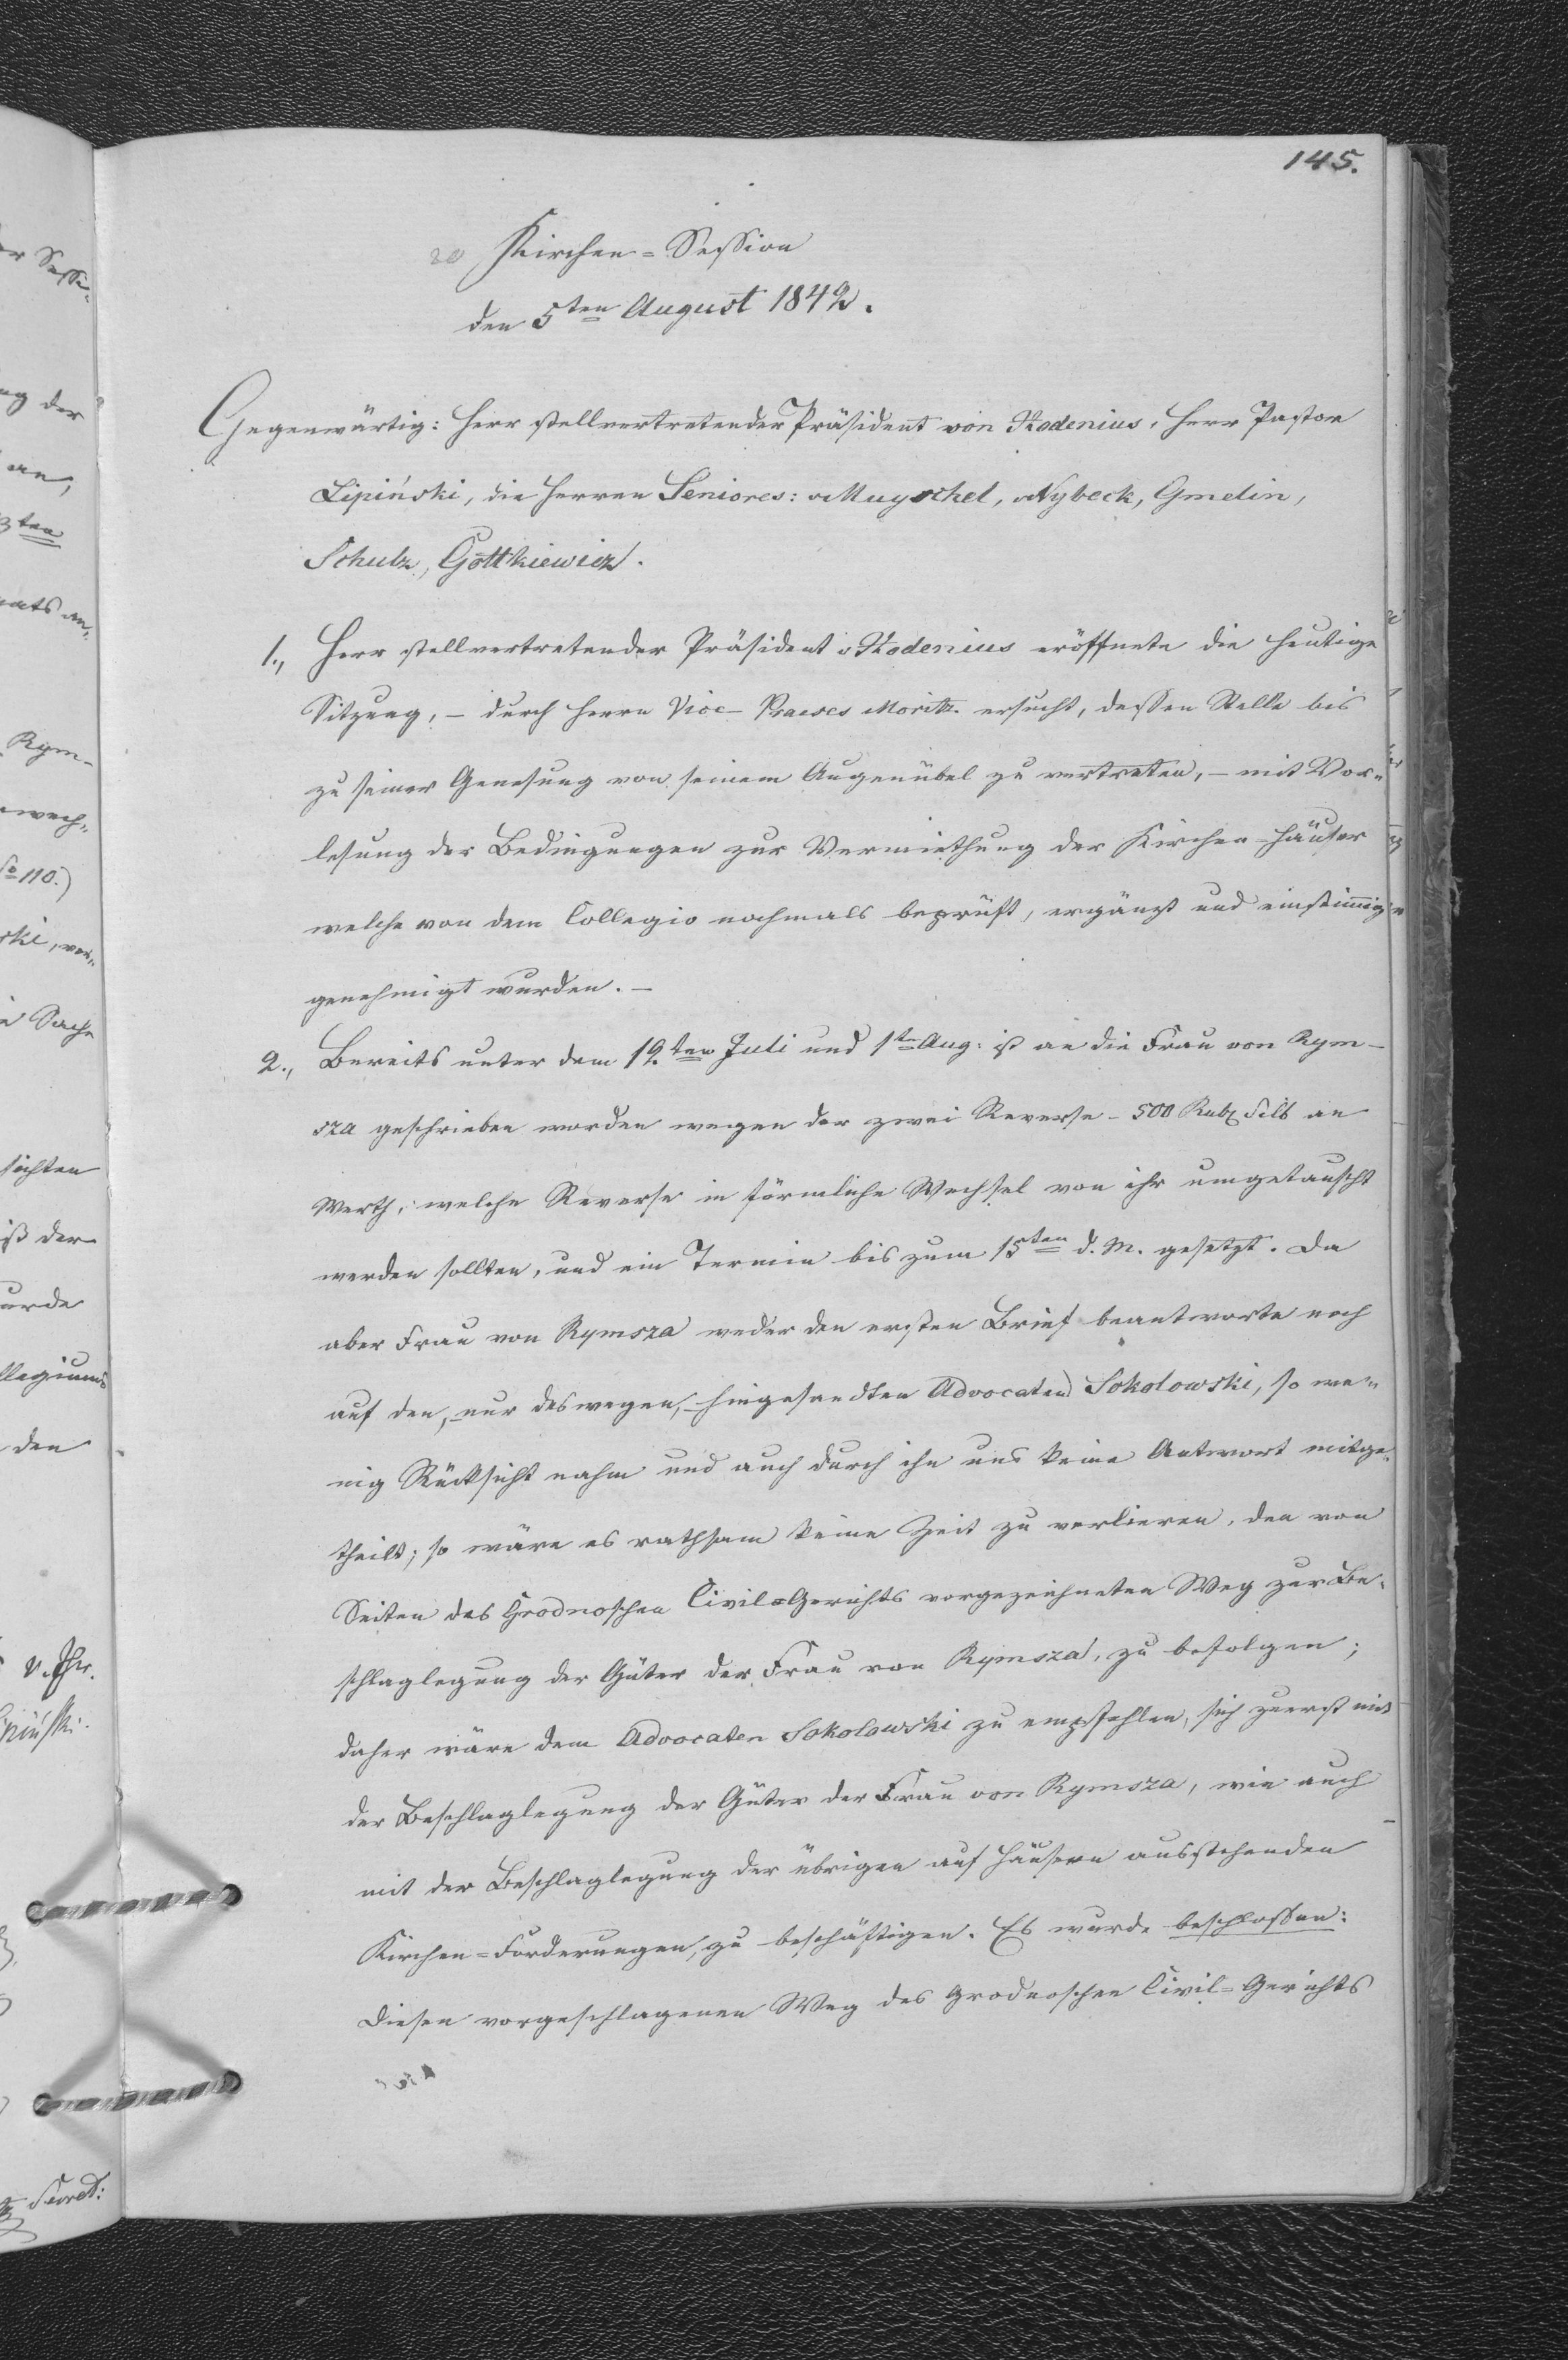 145.
Kirchen-Session
den 5ten August 1842.
Gegenwärtig: Herr stellvertretender Präsident von Rodenius, Herr Pastor
Lipiński, die Herren Seniores: Muyschel, Nybeck, Gmelin,
Schulz, Gottkiewicz.
1., Herr stellvertretender Präsident v Rodenius eröffnete die heutige
Sitzung, – durch Herrn Vice-Praeses Moritz ersucht, dessen Stelle bis
zu seiner Genesung von seinem Augenübel zu vertreten, – mit Vor-
lesung der Bedingungen zur Vermiethung der Kirchen-Häuser
welche von dem Collegio nochmals beprüft, ergänzt und einstimig
genehmigt wurden. –
2., Bereits unter dem 12ten Juli und 1ten Aug: ist an die Frau von Rym-
sza geschrieben worden wegen der zwei Reverse - 500 Rub Silb an
Werth; welche Reverse in förmliche Wechsel von ihr umgetauscht
werden sollten, und ein Termin bis zum 15ten d. M. gesetzt. Da
aber Frau von Rymsza weder den ersten Brief beantworte noch
auf den, nur deswegen, hingesandten Advocaten Sokolowski, so we-
nig Rücksicht nahm und auch durch ihn uns keine Antwort mitge-
theilt; so wäre es rathsam keine Zeit zu verlieren, den von
Seiten des Grodnoschen Civil-Gerichts vorgezeichneten Weg zur Be-
schlaglegung der Güter der Frau von Rymsza, zu befolgen;
daher wäre dem Advocaten Sokolowski zu empfehlen, sich zuerst mit
der Beschlaglegung der Güter der Frau von Rymsza, wie auch
mit der Beschlaglegung der übrigen auf Häusern ausstehenden
Kirchen-Forderungen, zu beschäftigen. Es wurde beschlossen:
Diesen vorgeschlagenen Weg des Grodnoschen Civil-Gerichts